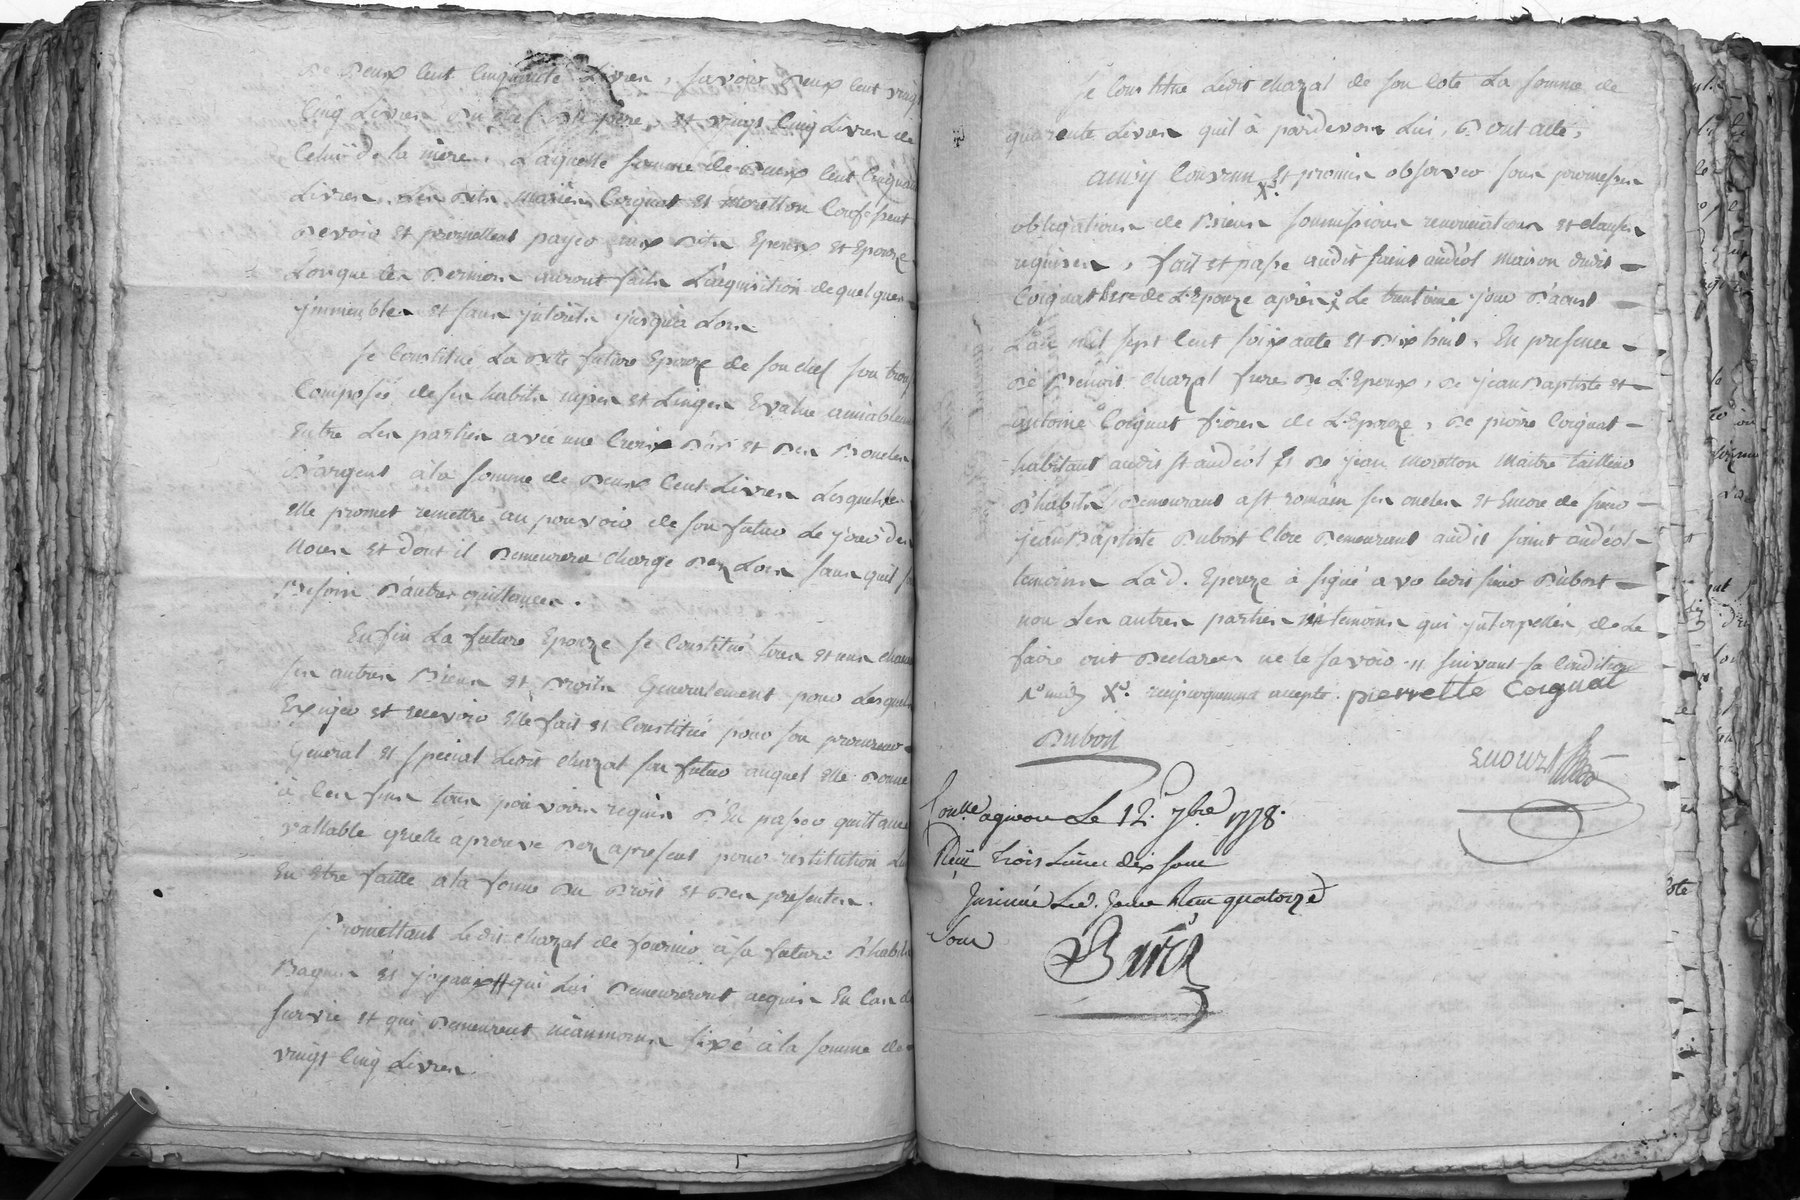 de deux Cent Cinquante Livres, savoir deux Cent vingt
Cinq Livres du chef du pere, et vingt Cinq Livres de
Celuy de la mère. Laquelle somme de deux Cent Cinquante
Livres, Les dits mariés Coignat et moretton Confessent
devoir et promettent payer aux dits Epoux et Epouze
Lorsque les derniers auront faits L'acquisition de quelques
immeubles et sans interêts jusqua Lors
Se Constitue La dite future Epouze de son chef son trous
Composée de ses habits nipes et Linges Evalué amiablement
Entre Les parties avec une Croix d'or et des Boucles
D'argent à la somme de deux Cent Livres Lesquelles
elle promet remettre au pouvoir de son futur Le jour des
Noces et dont il demeurera chargé dez Lors sans quil soit
Besoin D'autres quittances.
Enfin La future Epouze se Constitue tous et uns chacuns
ses autres Biens et droits Generalement pour Lesquels
Exiger et recevoir Elle fait et Constitue pour son procureur
General et special Ledit chazal son futur auquel elle donne
à Ces fins tous pouvoirs requis D'En passer quittance
vallable quelle aprouve dez apresent pour restitution Lui
En Etre faitte à la forme du droit et des presentes.
Promettant Ledit chazal de fournir à sa future D'habits
Bagues et joyaux qui Lui demeureront acquis En Cas de
survie et qui demeurent néanmoins fixé à la somme de
vingt Cinq Livres
Se Constitue Ledit chazal de son Coté La somme de
quarente Livres quil à pardevers Lui, Dont acte,
ainsy Convenu et promis observer sous promesses
obligations de Biens soumissions renonciations et clauses
requises, fait et passé audit saint andéol maison dudit
Coignat pere de L'Epouze après Le trentieme jour D'aoust
L'an mil sept Cent soixante et dix huit. En presence
de Benoit chazal frere de L'Epoux, de jean Baptiste et
antoine Coignat frères de L'Epouze, de pierre Coignat
habitant audit st andéol et de jean moretton maitre tailleur
D'habits demeurant a st romain ses oncles et Encore de sieur
jean Baptiste Dubost Clerc demeurant audit saint andéol
temoins La d. Epouze à signé avec ledit sieur Dubost
non Les autres parties ni temoins qui interpellés de Le
faire ont declarés ne le savoir suivant sa Condition
reciproquement accepté. pierrette Coignat
Dubost
Enourt
Con.lle a givors Le 12. 7bre 1778.
Recu trois Livres dix sous
Insinué Led. jour Recu quatorze
sous